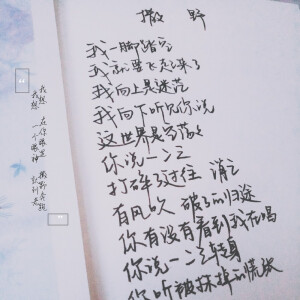 撒野
我一脚踏空
我就要飞起来了
我向上是迷茫
我向下听见你说
这世界是空荡荡
你说一二三
打碎了过往 消亡
有风吹 破了的归途
你有没有看到我在唱
你说一二三转身
你听被抹掉的慌张
我想
我想 在你眼里
一个眼神